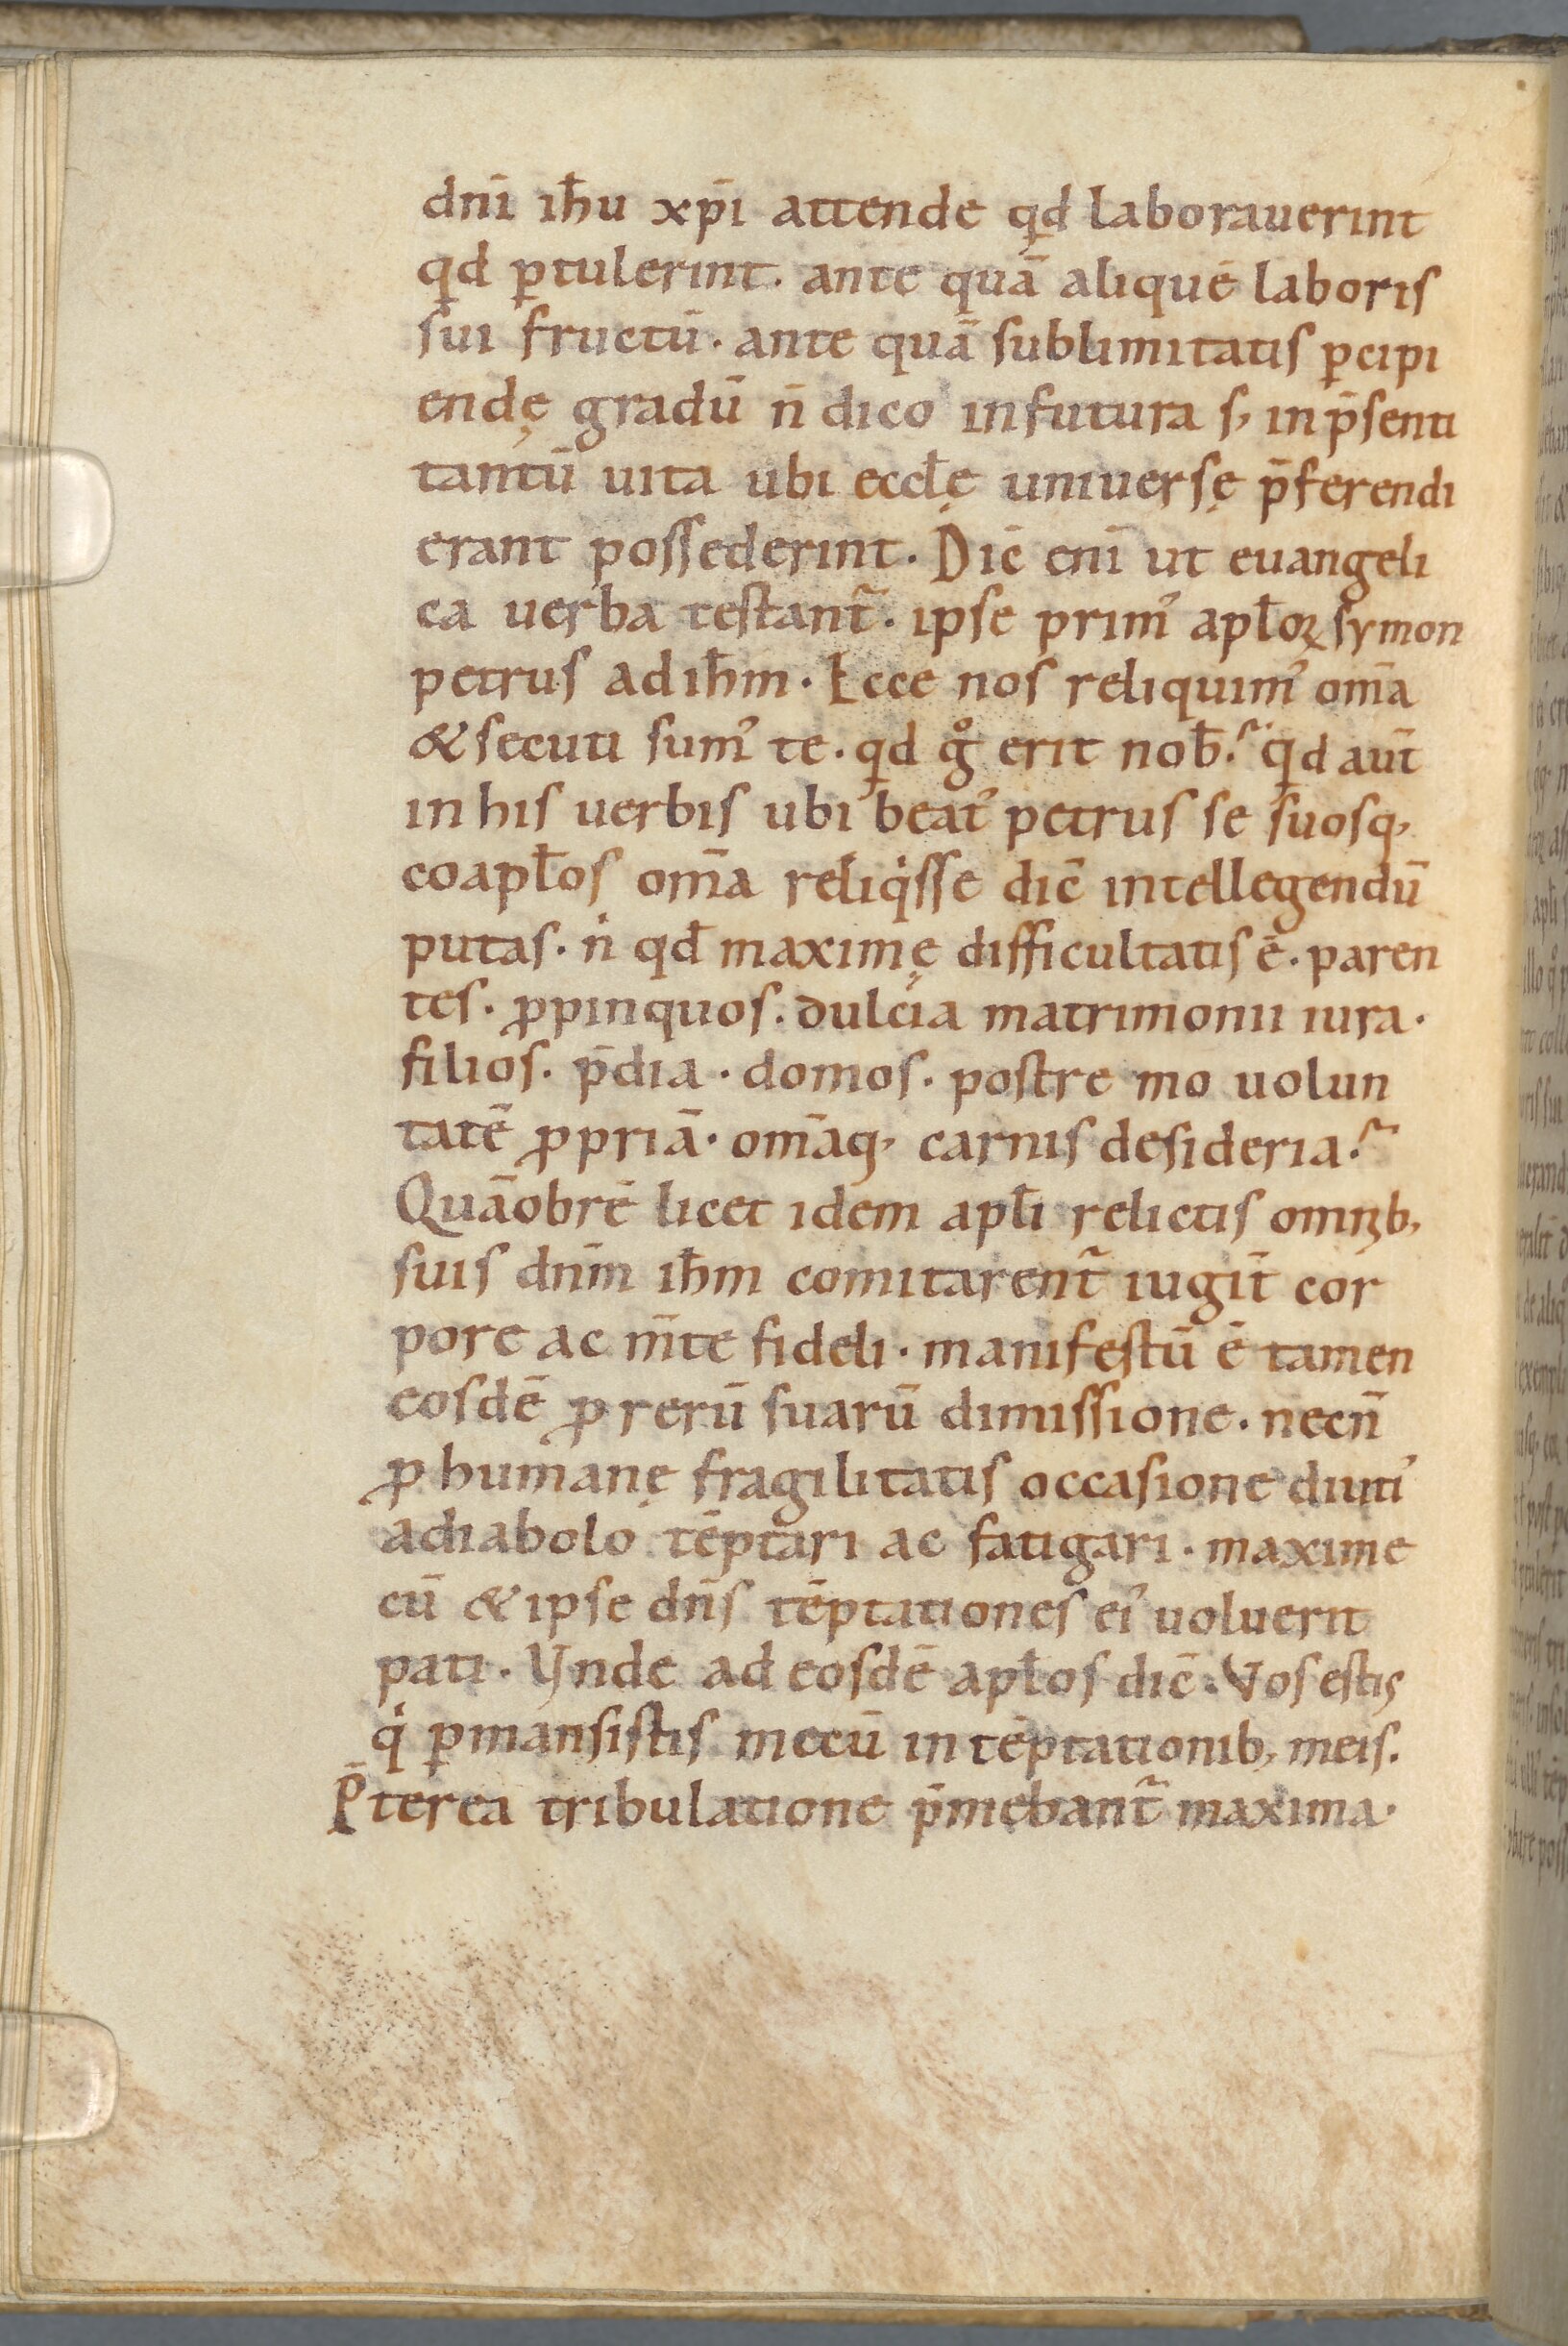 dnī ih̄u xp̄i attende qd laborauerint
qd ꝑtulerint. ante quā aliquē laboris
sui fructū. ante quā sublimitatis ꝑcipi
endę gradū n̄ dico infutura s; in p̄senti
tantū uita ubi eccl̄ę uniuersę p̄ferendi
erant possederint. Dic̄ enī ut euangeli
ca uerba testant᷑. ipse primꝰ apl̄oꝝ symon
petrus ad ih̄m. Ecce nos reliquimꝰ om̄a
& secuti sumꝰ te. qd gͦ erit nob̄? qd aut̄
in his uerbis ubi beatꝰ petrus se suosq;
coapl̄os om̄a reliqͥsse dic̄ intellegendū
putas. nͥ qd̄ maximę difficultatis ē. paren
tes. ꝓpinquos. dulcia matrimonii iura.
filios. p̄dia. domos. postre mo uolun
tatē ꝓpriā. om̄aq; carnis desideria?
Quāobrē licet idem apl̄i relictis omnib;
suis dn̄m ih̄m comitarent᷑ iugit̄ cor
pore ac m̄te fideli. manifestū ē tamen
eosdē ꝓ rerū suarū dimissione. necn̄
ꝓ humanę fragilitatis occasione diutiꝰ
adiabolo tēptari ac fatigari. maxime
cū & ipse dn̄s tēptationes eiꝰ uoluerit
pati. Vnde ad eosdē apl̄os dic̄. Vos estis
qͥ ꝑmansistis mecū in tēptationib; meis.
P̄terea tribulatione p̄mebant᷑ maxima.